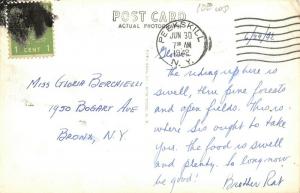 1 CENT 1
POST CARD
ACTUAL PHOTOGRAPH
PEEKSKILL
JUN 30
7 AM
N.Y.
6/29/52
MISS GLORIA BERCHIELLI
1950 BOGART AVE
BRONX, N.Y.
The riding up here is
swell, thru pine forests
and open fields. This is
where Sis ought to take
you. The food is swell
and plenty. So long now
be good!
Brother Rat